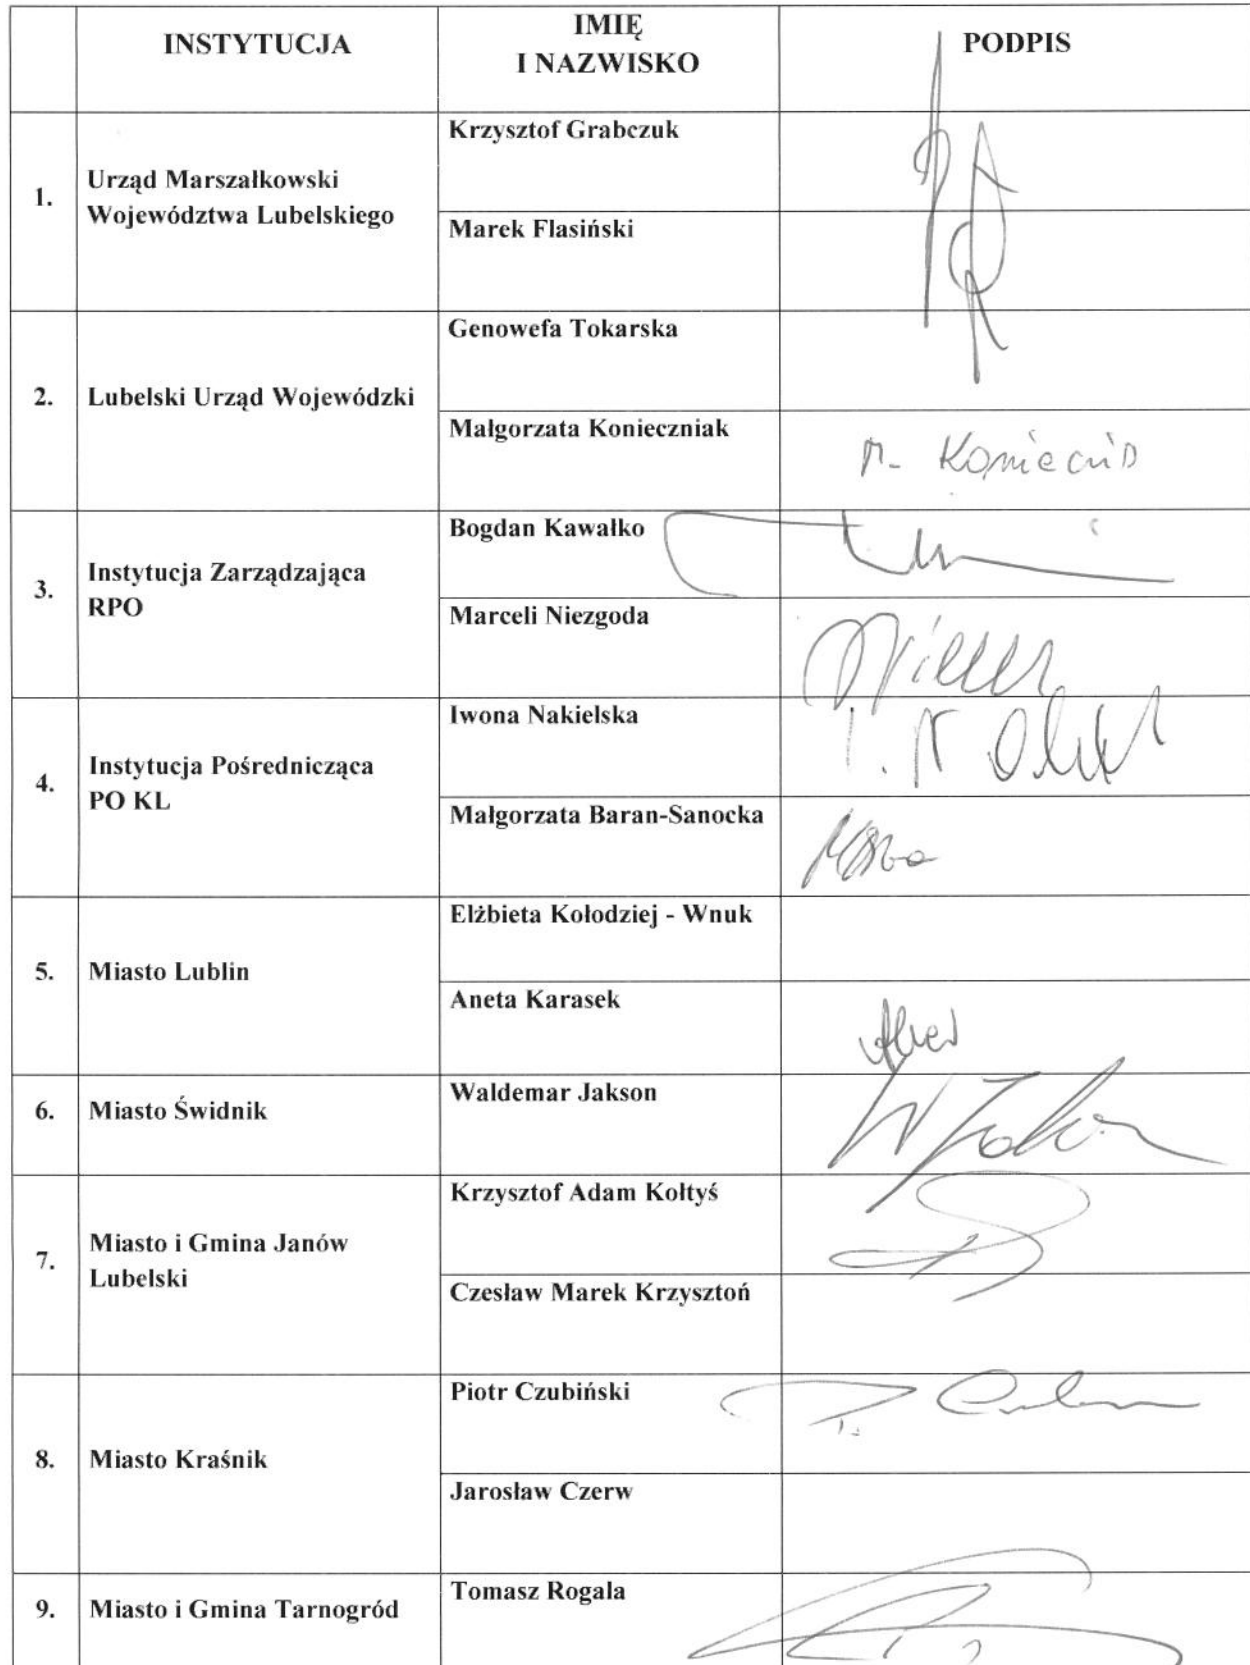 INSTYTUCJA
IMIĘ
I NAZWISKO
PODPIS
1.
Urząd Marszałkowski
Województwa Lubelskiego
Krzysztof Grabczuk
Marek Flasiński
2.
Lubelski Urząd Wojewódzki
Genowefa Tokarska
Małgorzata Konieczniak
3.
Instytucja Zarządzająca
RPO
Bogdan Kawałko
Marceli Niezgoda
4.
Instytucja Pośrednicząca
PO KL
Iwona Nakielska
Małgorzata Baran-Sanocka
5.
Miasto Lublin
Elżbieta Kołodziej - Wnuk
Aneta Karasek
6.
Miasto Świdnik
Waldemar Jakson
7.
Miasto i Gmina Janów
Lubelski
Krzysztof Adam Kołtyś
Czesław Marek Krzysztoń
8.
Miasto Kraśnik
Piotr Czubiński
Jarosław Czerw
9.
Miasto i Gmina Tarnogród
Tomasz Rogala